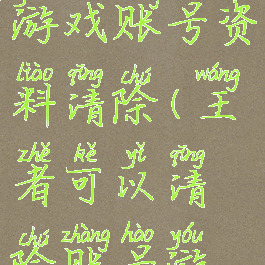 游戏账号资
liào qīng chú wáng
料清除(王
zhě kě yǐ qīng
者可以清
chú zhàng hào yóu
除账号游